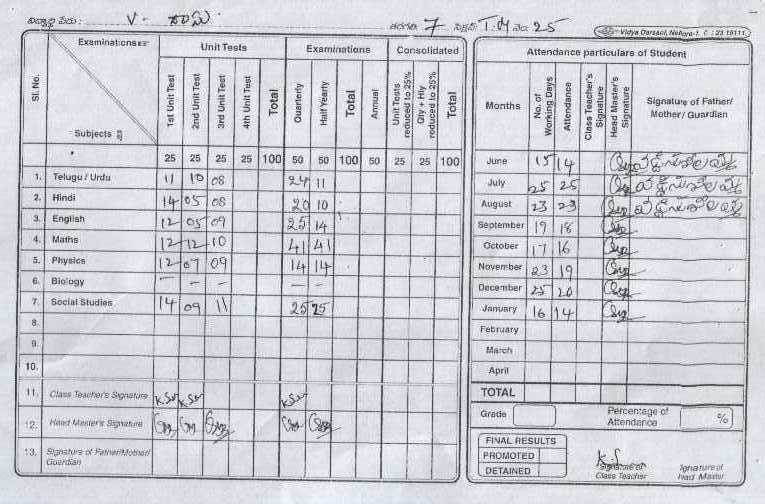 విద్యార్థి పేరు: V- రామి తరగతి 7 సెక్షన్ T.M నం. 25
Vidya Darsani, Nellore-1. C : 23 19111
Examinations Subjects Unit Tests Examinations Consolidated
Sl. No. 1st Unit Test 2nd Unit Test 3rd Unit Test 4th Unit Test Total Quarterly Half Yearly Total Annual Unit Tests reduced to 25% Qty + Hly reduced to 25% Total
25 25 25 25 100 50 50 100 50 25 25 100
1. Telugu / Urdu 11 10 08 24 11
2. Hindi 14 05 08 20 10
3. English 12 05 09 25 14
4. Maths 12 12 10 41 41
5. Physics 12 07 09 14 14
6. Biology — — — —
7. Social Studies 14 09 11 25 25
8.
9.
10.
11. Class Teacher's Signature
12. Head Master's Signature
13. Signature of Father/Mother/ Guardian
Attendance particulars of Student
Months No. of Working Days Attendance Class Teacher's Signature Head Master's Signature Signature of Father/ Mother / Guardian
June 15 14
July 25 25
August 23 23
September 19 18
October 17 16
November 23 19
December 25 20
January 16 14
February
March
April
TOTAL
Grade Percentage of Attendance %
FINAL RESULTS
PROMOTED
DETAINED
Signature of Class Teacher
Signature of Head Master